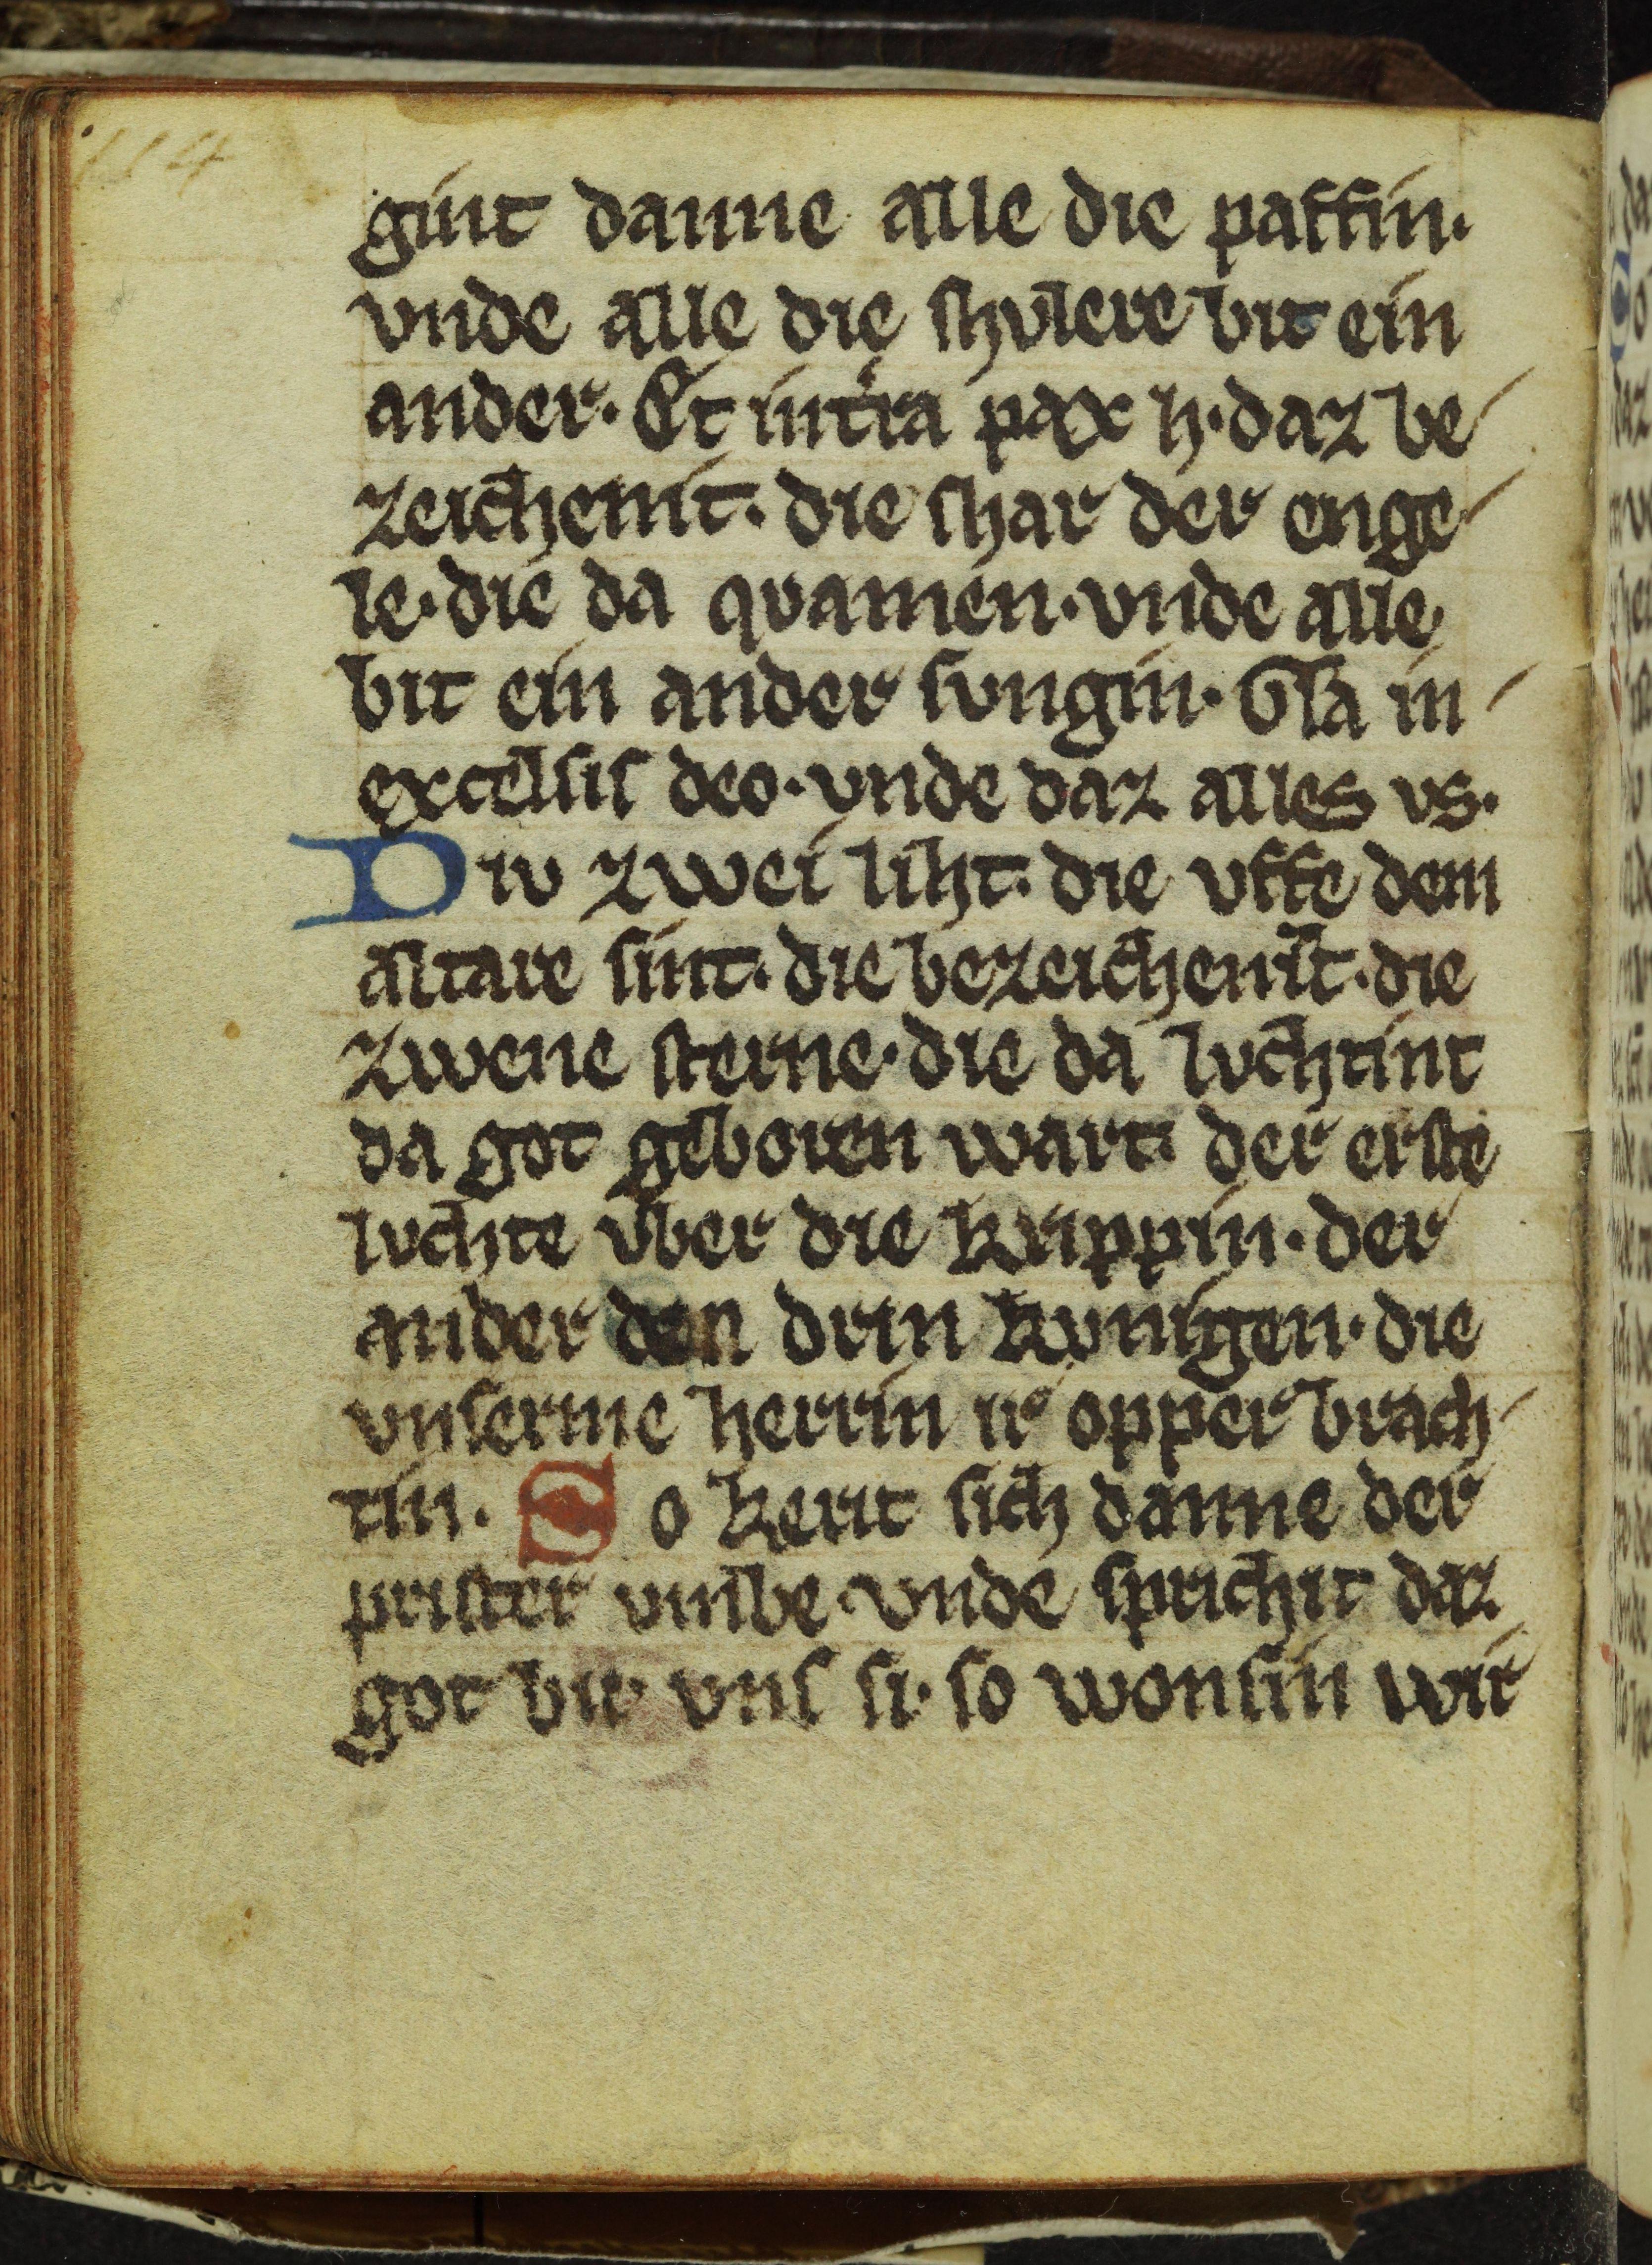 114
gint danne alle die paffin·
vnde alle die shvlere bit ein
ander· Et intͥra pax h·daz be
zeichenit· die shar der enge
le·die da qvamen·vnde alle
bit ein ander svngin· Gl̅a in
excelsis deo·vnde daz alles vs·
Div zwei liht· die vffe dem
altare sint· die bezeichenit·die
zwene sterne·die da lvchtint
da got geboren wart· der erste
lvchte vber die krippin·der
ander den drin kvnigen·die
vnserme herrin ir opper brach
tin. So kerit sich danne der
prister vmbe·vnde sprichit daz
got bit vns si·so wonsin wir